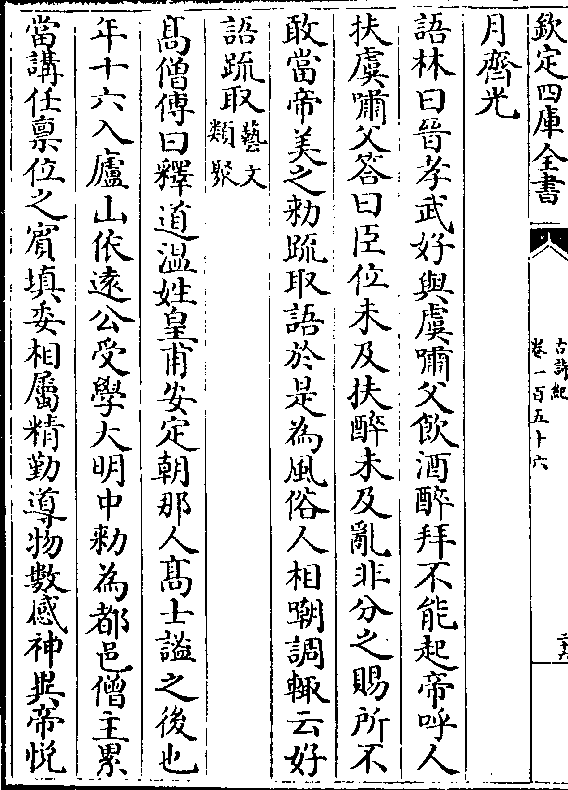 欽定四庫全書
古詩紀
卷一百五十六
月齊光
語林曰晉孝武好與虞嘯父飲酒醉拜不能起帝呼人
扶虞嘯父答曰臣位未及扶醉未及亂非分之賜所不
敢當帝美之勅疏取語於是為風俗人相嘲調輙云好
語疏取藝文
類聚
髙僧傳曰釋道温姓皇甫安定朝那人髙士謐之後也
年十六入廬山依逺公受學大明中勅為都邑僧主累
當講任禀位之賓填委相屬精勤導物數感神異帝悦